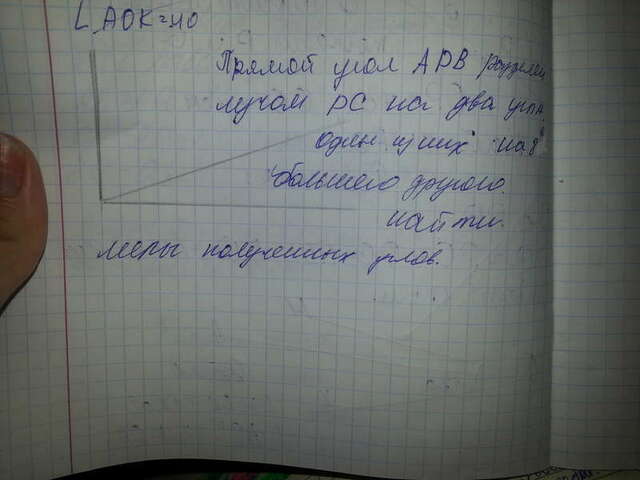 ∠AOK=40
Прямой угол APB разделен
лучом PC на два угла
один из них на 8°
большего другого.
найти
меры полученных углов.